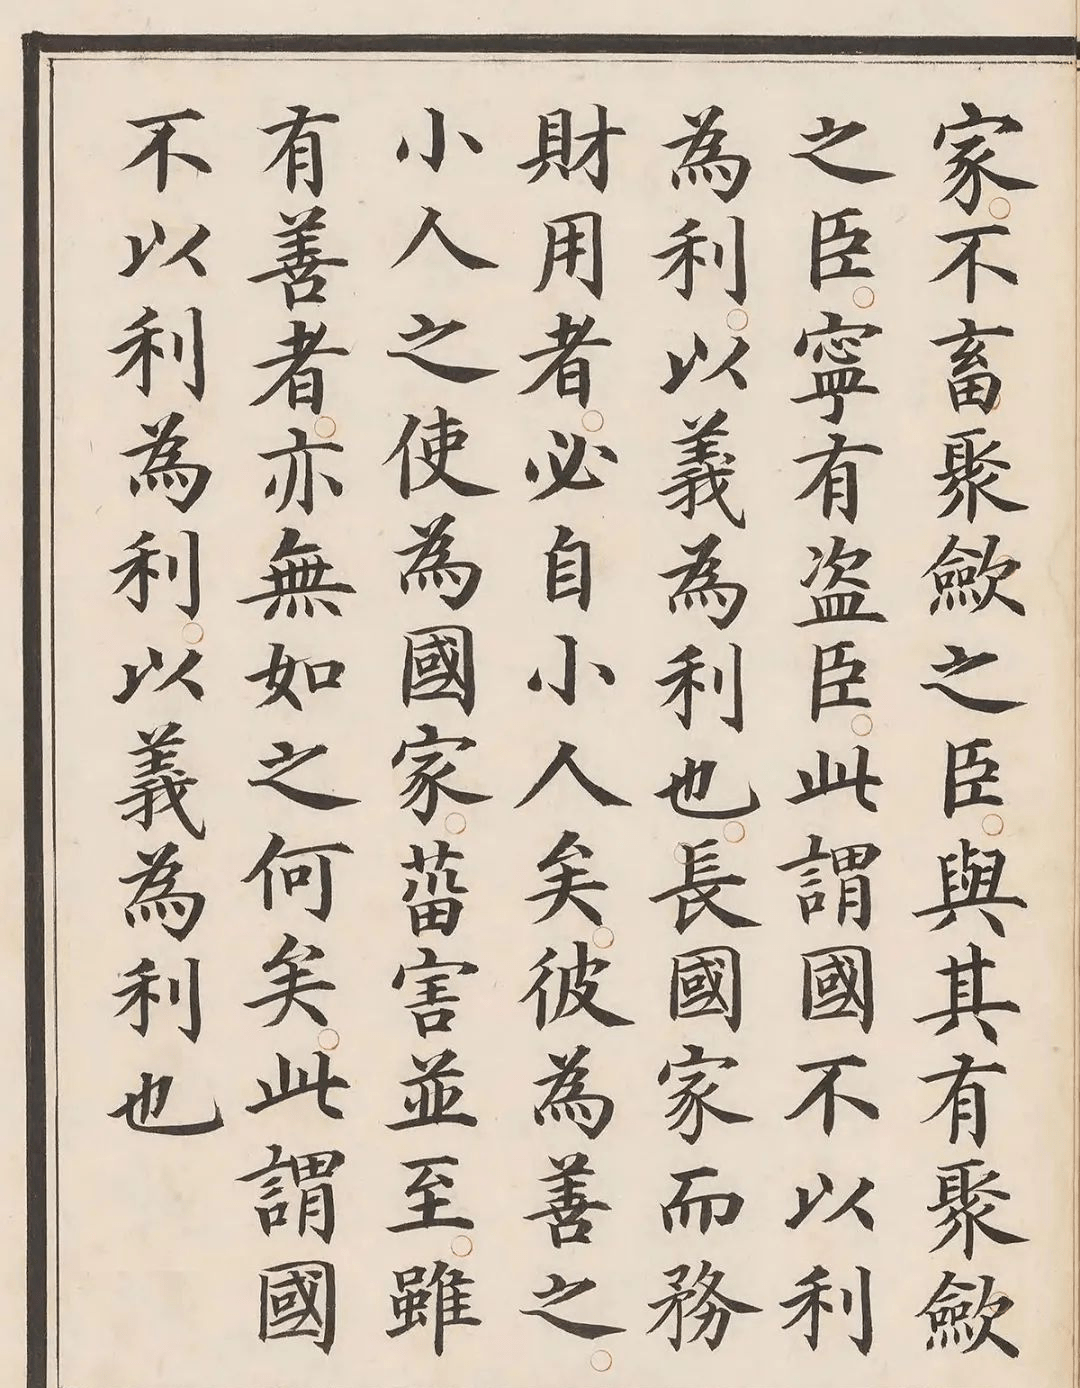 家。不畜聚歛之臣。與其有聚歛
之臣。寧有盗臣。此謂國不以利
為利。以義為利也。長國家而務
財用者。必自小人矣。彼為善之。
小人之使為國家。菑害並至。雖
有善者。亦無如之何矣。此謂國
不以利為利。以義為利也